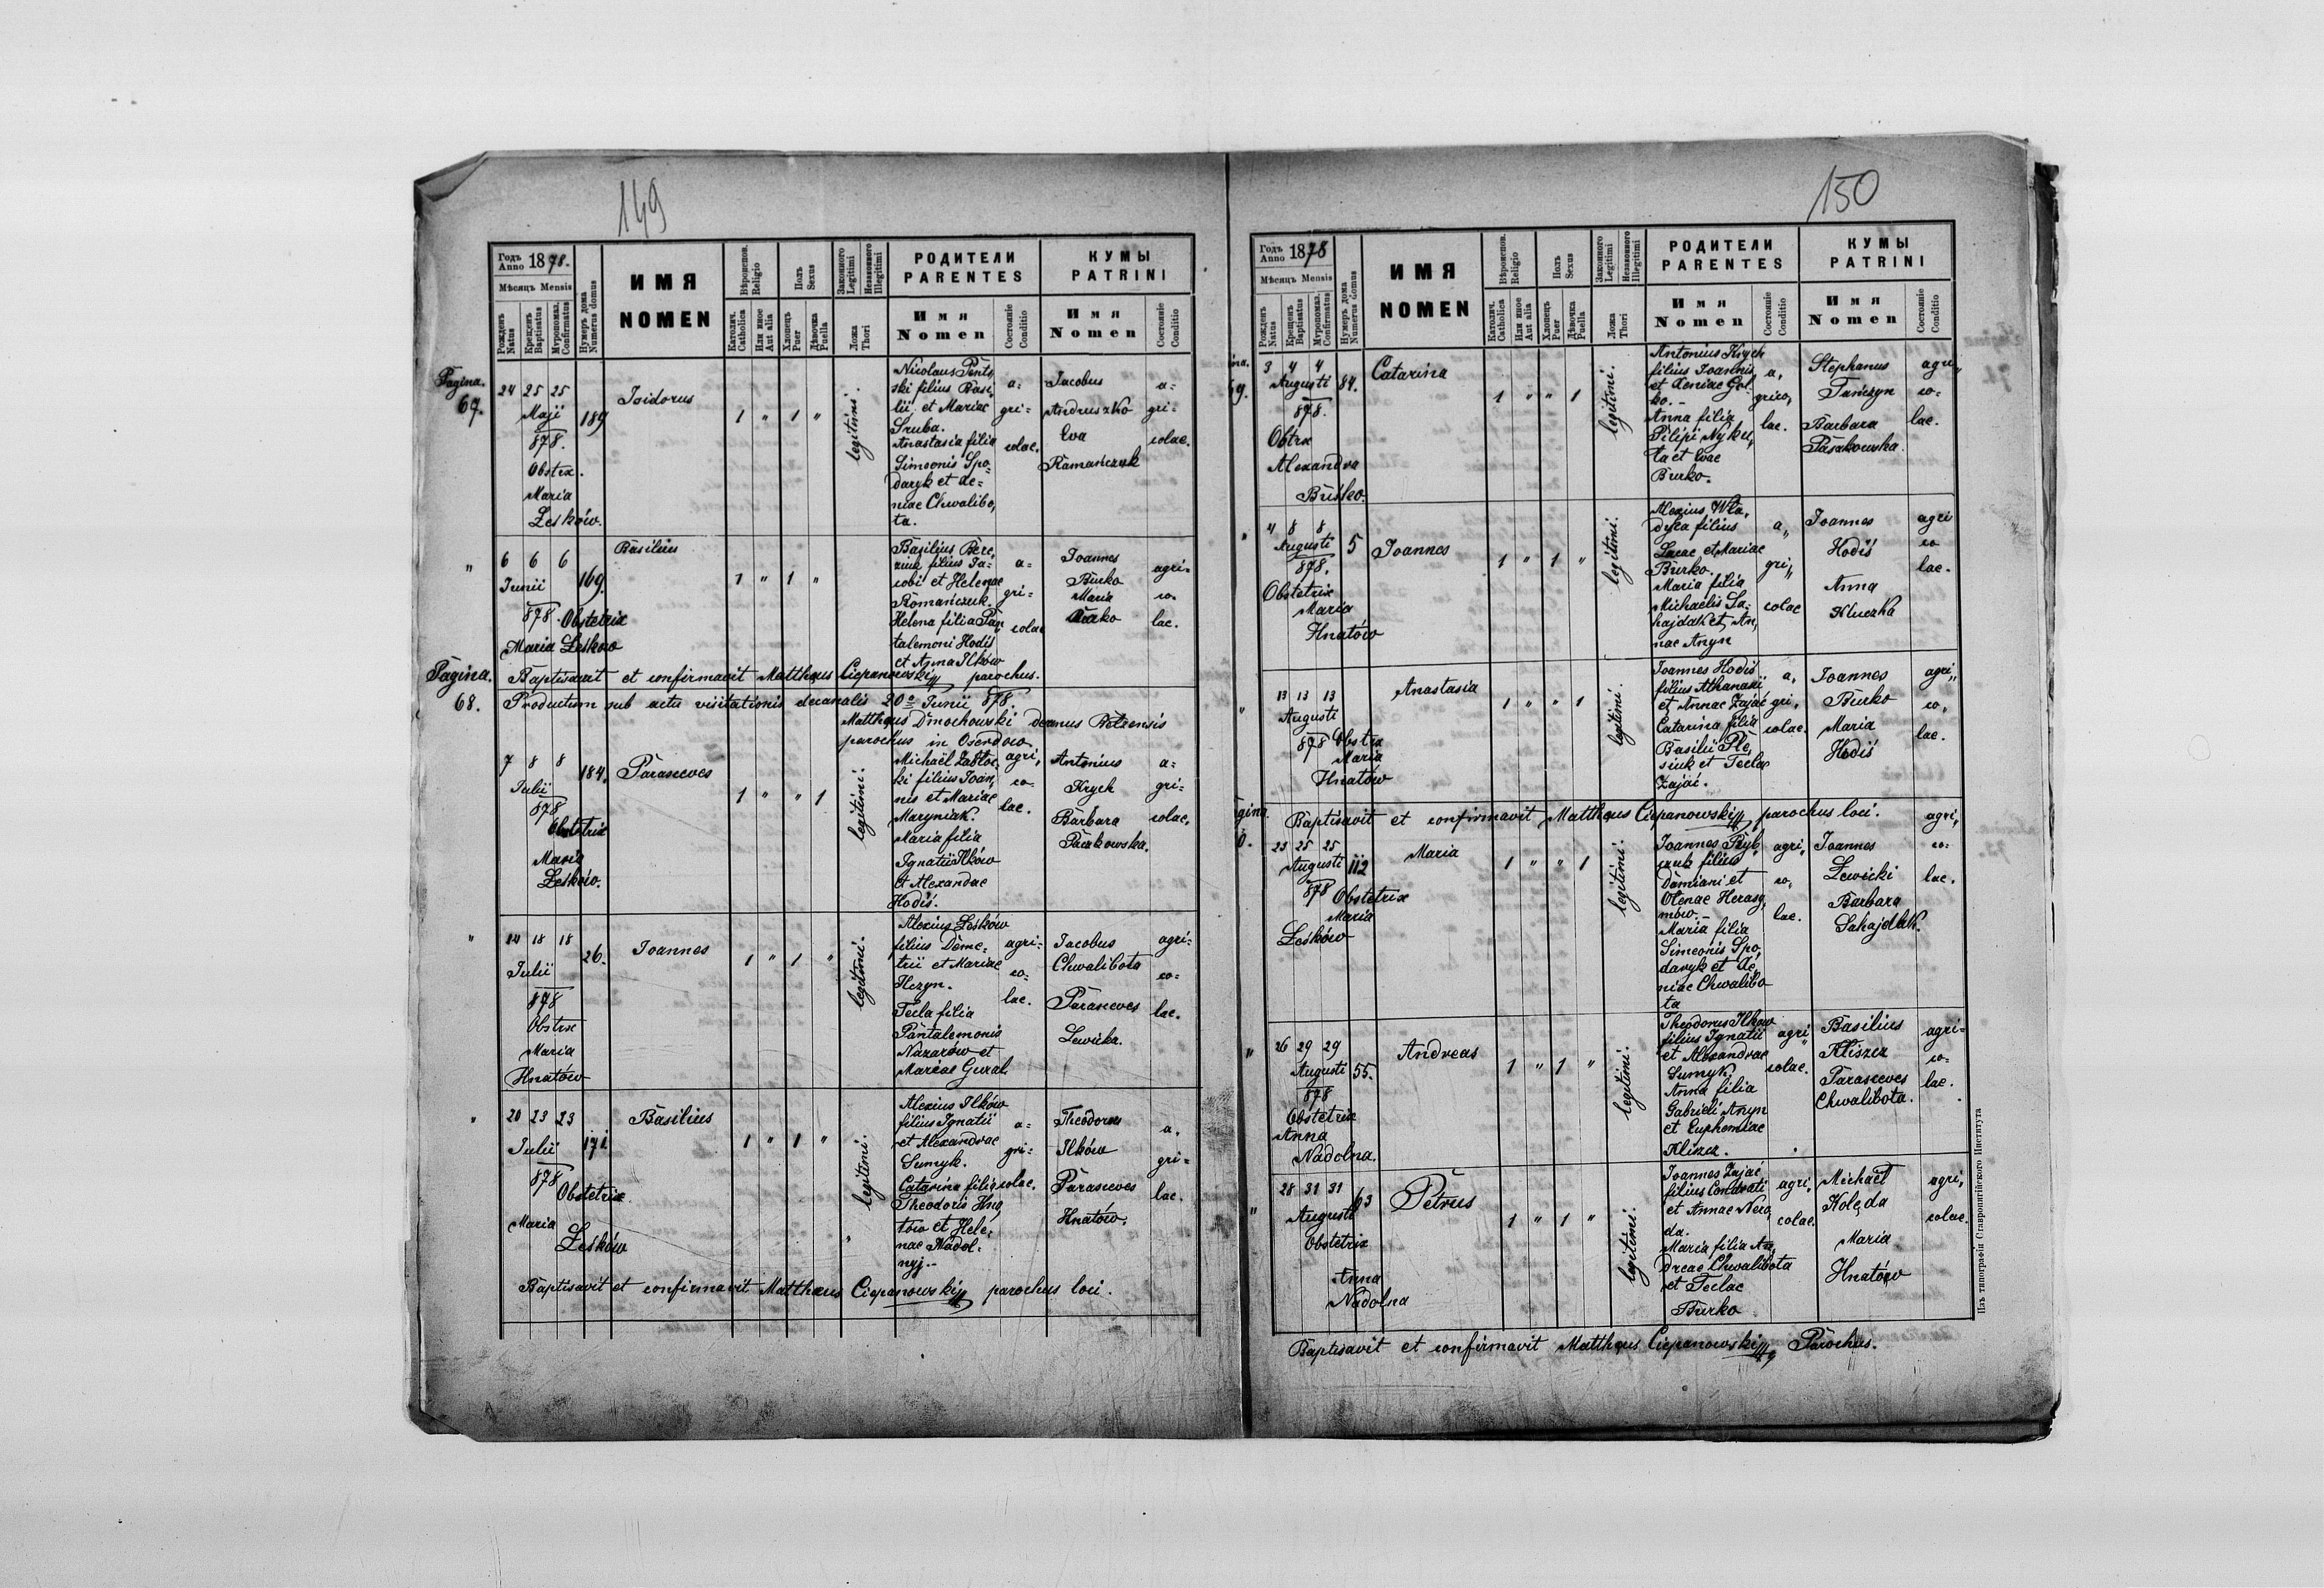 149
Годъ Anno 1878.
Мѣсяцъ Mensis
Рожденъ Natus
Крещенъ Baptisatus
Мѵропомаз. Confirmatus
Нумеръ дома Numerus domus
ИМЯ
NOMEN
Вѣроисповѣд. Religio
Католич. Catholica
Или иное Aut alia
Полъ Sexus
Хлопецъ Puer
Дѣвочка Puella
Законного Legitimi
Незаконного Illegitimi
Ложа Thori
РОДИТЕЛИ
PARENTES
Имя
Nomen
Состояніе
Conditio
КУМЫ
PATRINI
Имя
Nomen
Состояніе
Conditio
Pagina.
67.
24 25 25
Maji
878.
Obstrx.
Maria
Leśków.
189
Isidorus
1 " 1 "
legitimi.
ski filius Basi,
lii et Mariae
Sruba.
Anastasia filia
Simeonis Spo-
daryk et Xe=
niae Chwalibo,
ta.
a=
gri=
colae.
Jacobus
Andruszko
Eva
Romańczuk
a=
gri=
colae.
"
6 6 6
Junii
878. Obstetrix
Maria Leśkow
169.
Basilius
1 " 1 "
Basilius Bere,
ziuk filius Ja=
cobi et Helenae
Romańczuk.
Helena filia Pan
talemoni Hodiś
et Anna Ilków
a=
gri=
colae
Joannes
Burko
Maria
Burko
agri=
co-
lae.
Baptisavit et confirmavit Matthaeus Ciepanowski parochus.
Pagina.
68.
Productum sub actu visitationis decanalis 20º Junii 878.
Matthaeus Dmochowski decanus Bełzensis
parochus in Oserdow
7 8 8
Julii
878
Obstetrix
Maria
Leśków.
184.
Parasceves
1 " " 1
legitimi.
Michaël Zabłoc-
ki filius Joan,
nis et Mariae
Maryniak.
Maria filia
Ignatii Ilków
et Alexandae
Hodiś.
agri,
co-
lae.
Antonius
Krych
Barbara
Paczkowska.
a=
gri=
colae,
"
14 18 18
Julii
878
Obstrx
Maria
Hnatów
26.
Joannes
1 " 1 "
legitimi.
Alexius Leśków
filius Deme-
trii et Mariae
Hczyn.
Tecla filia
Pantalemonis
Nazarów et
Mariae Gural.
agri=
co=
lae.
Jacobus
Chwalibota
Parasceves
Lewicka.
agri=
co=
lae.
"
20 23 23
Julii
878
Obstetrix
Maria
Leśków
171.
Basilius
1 " 1 "
legitimi.
Alexius Ilków
filius Ignatii
et Alexandrae
Sumyk.
Catarina filia
Theodoris Hna,
tow et Hele-
nae Nadol-
nyj.-
a=
gri=
colae.
Theodorus
Ilków
Parasceves
Hnatów.
a,
gri=
lae.
Baptisavit et confirmavit Matthaeus Ciepanowski parochus loci.
150
Годъ Anno 1878
Мѣсяцъ Mensis
Рожденъ Natus
Крещенъ Baptisatus
Мѵропомаз. Confirmatus
Нумеръ дома Numerus domus
ИМЯ
NOMEN
Вѣроисповѣд. Religio
Католич. Catholica
Или иное Aut alia
Полъ Sexus
Хлопецъ Puer
Дѣвочка Puella
Законного Legitimi
Незаконного Illegitimi
Ложа Thori
РОДИТЕЛИ
PARENTES
Имя
Nomen
Состояніе
Conditio
КУМЫ
PATRINI
Имя
Nomen
Состояніе
Conditio
3 4 4
Augusti
878.
Obtrx
Alexandra
Buśko.
84.
Catarina
1 " " 1
legitimi.
Antonius Krych
filius Joannis
et Xeniae Gol
ko.-
Anna filia
Pilipi Nyku,
ta et Evae
Burko.
a,
grico,
lae.
Stephanus
Tańczyn
Barbara
Paszkowska.
agri,
co=
lae.
"
4 8 8
Augusti
878.
Obstetrix
Maria
Hnatów
5
Joannes
1 " 1 "
legitimi.
Alexius Wła,
dyka filius
Lucae et Mariae
Burko.
Maria filia
Michaelis Sa-
hajdak et An,
nae Anyn
a,
gri,
colae
Joannes
Hodiś
Anna
Kluczka
agri
co
lae.
"
13 13 13
Augusti
878 Obstrx
Maria
Hnatów
Anastasia
1 " " 1
legitimi.
Joannes Hodiś
filius Athanasii
et Annae Zająć
Catarina filia
Basilii Ple,
siuk et Teclae
Zająć.
a,
gri,
colae.
Joannes
Burko
Maria
Hodiś
agri,
co,
lae.
Baptisavit et confirmavit Matthaeus Ciepanowski parochus loci.
23 25 25
Augusti
878 Obstetrix
Maria
Leśków
112
Maria
1 " " 1
legitimi.
czuk filius
Damiani et
Olenae Herasy,
mow.-
Maria filia
Simeonis Spo,
daryk et Xe,
niae Chwalibo
ta
agri,
co,
lae.
Joannes
Lewicki
Barbara
Sahajdak.
agri,
co-
lae.
"
26 29 29
Augusti
878
Obstetrix
Anna
Nadolna.
55.
Andreas
1 " 1 "
legitimi.
Theodorus Ilkow
filius Ignatii
et Alexandrae
Sumyk.
Anna filia
Gabrieli Anyn
et Euphemiae
Kliszcz.
agri,
colae.
Basilius
Kliszcz
Parasceves
Chwalibota.
agri=
co=
lae.
"
28 31 31
Augusti
Obstetrix
Anna
Nadolna
Petrus
1 " 1 "
legitimi.
Joannes Zająć
filius Condrati
et Annae Nero,
da.
Maria filia An,
dreae Chwalibota
et Teclae
Burko
agri,
colae.
Michaël
Kolęda
Maria
Hnatów
agri,
colae.
Baptisavit et confirmavit Matthaeus Ciepanowski Parochus.
Изъ типографіи Ставропигійского Института